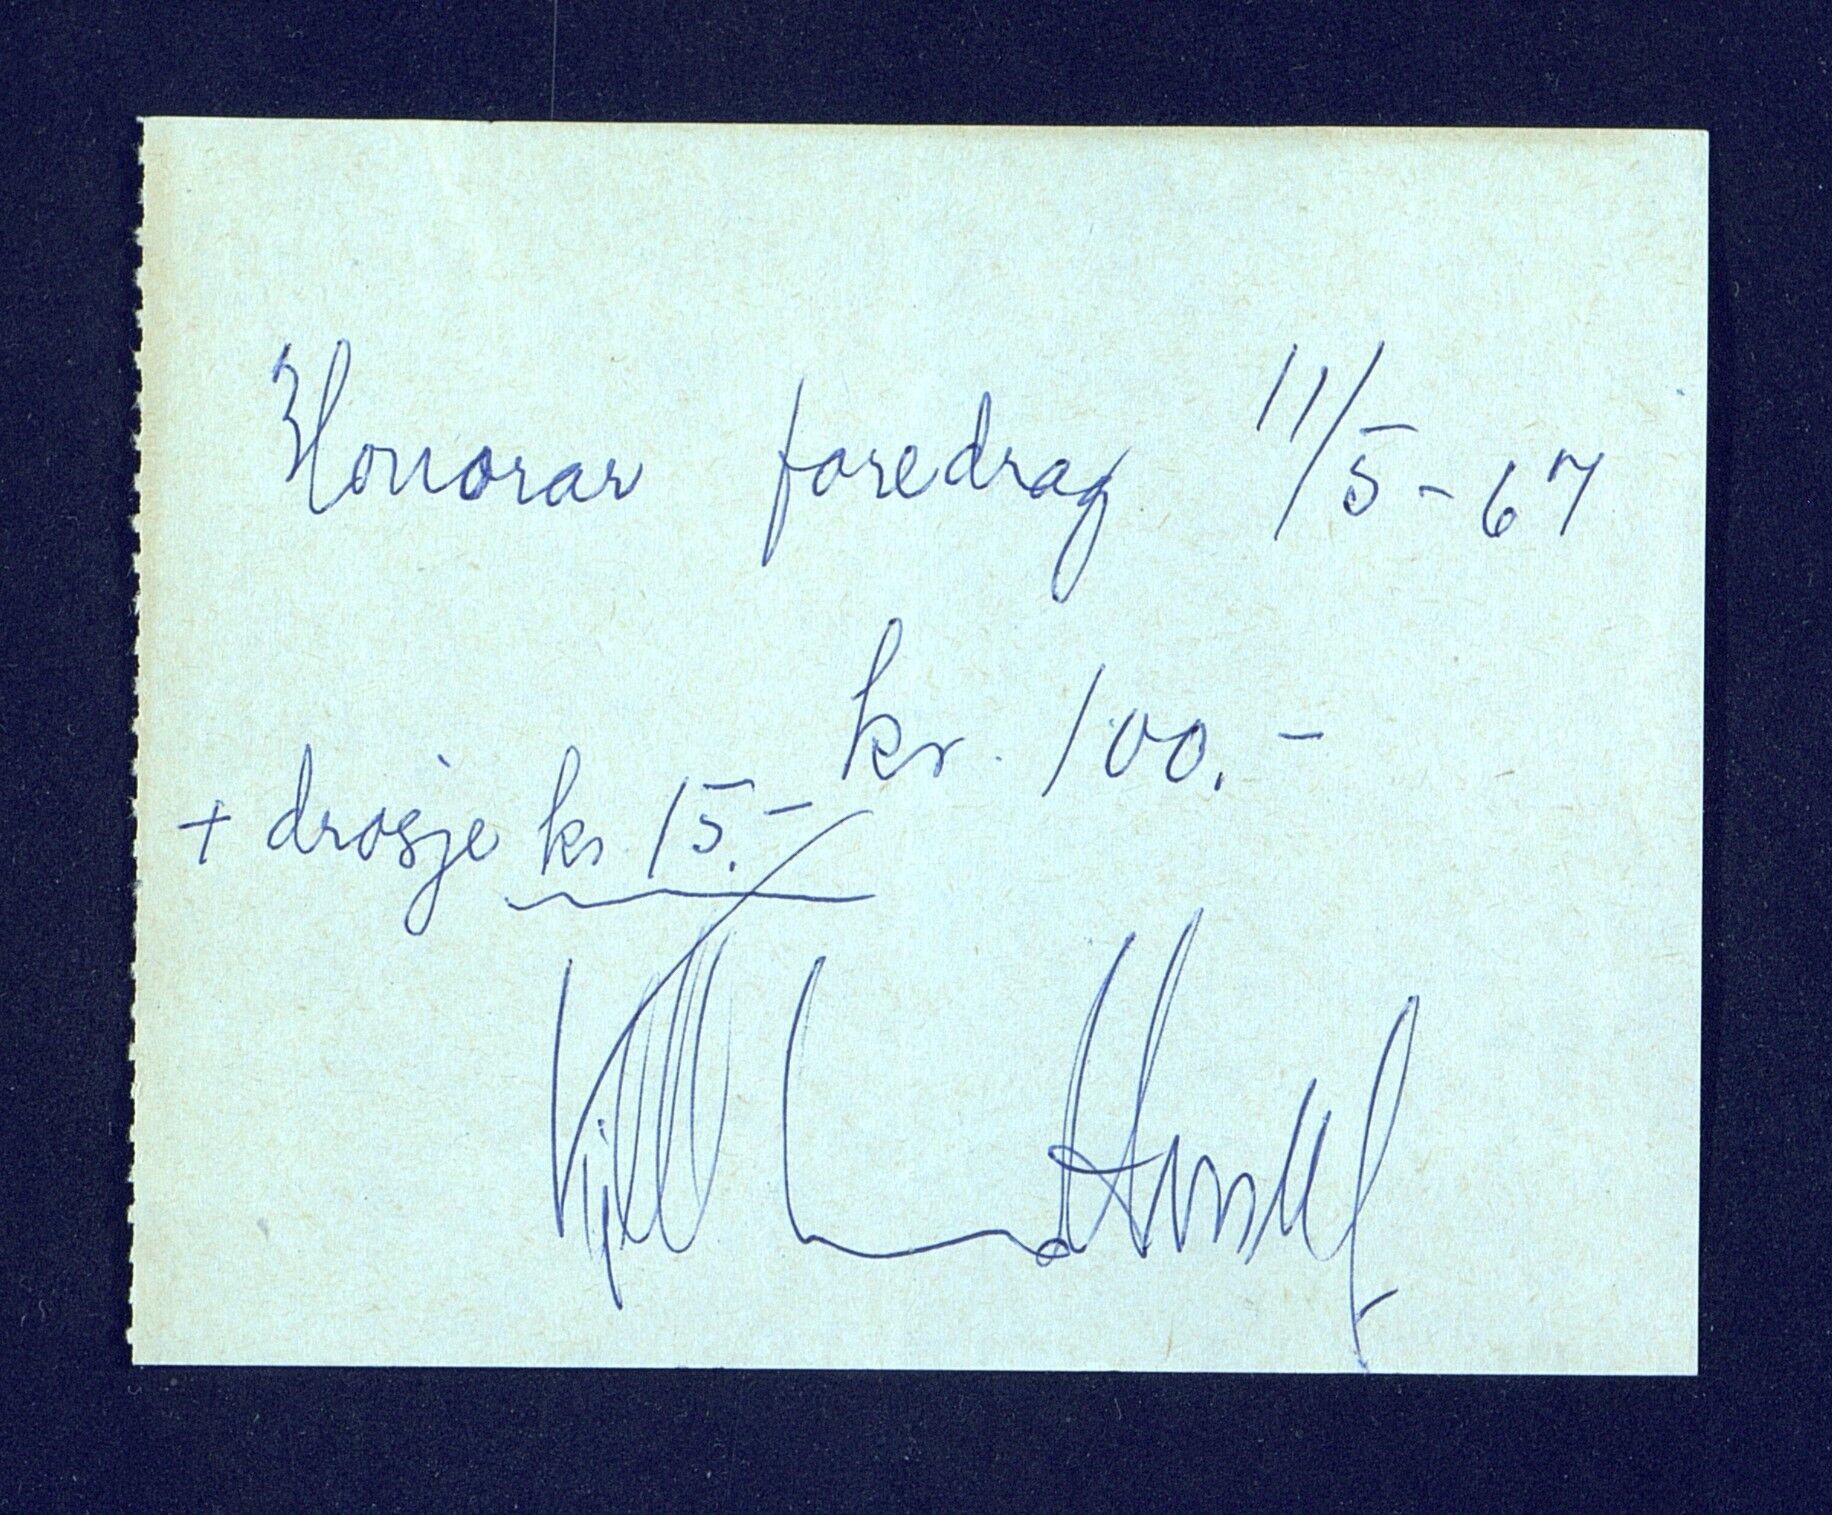 Honorar foredrag 11/5-67
kr. 100.-
+ drosje kr. 15.-
Kjell